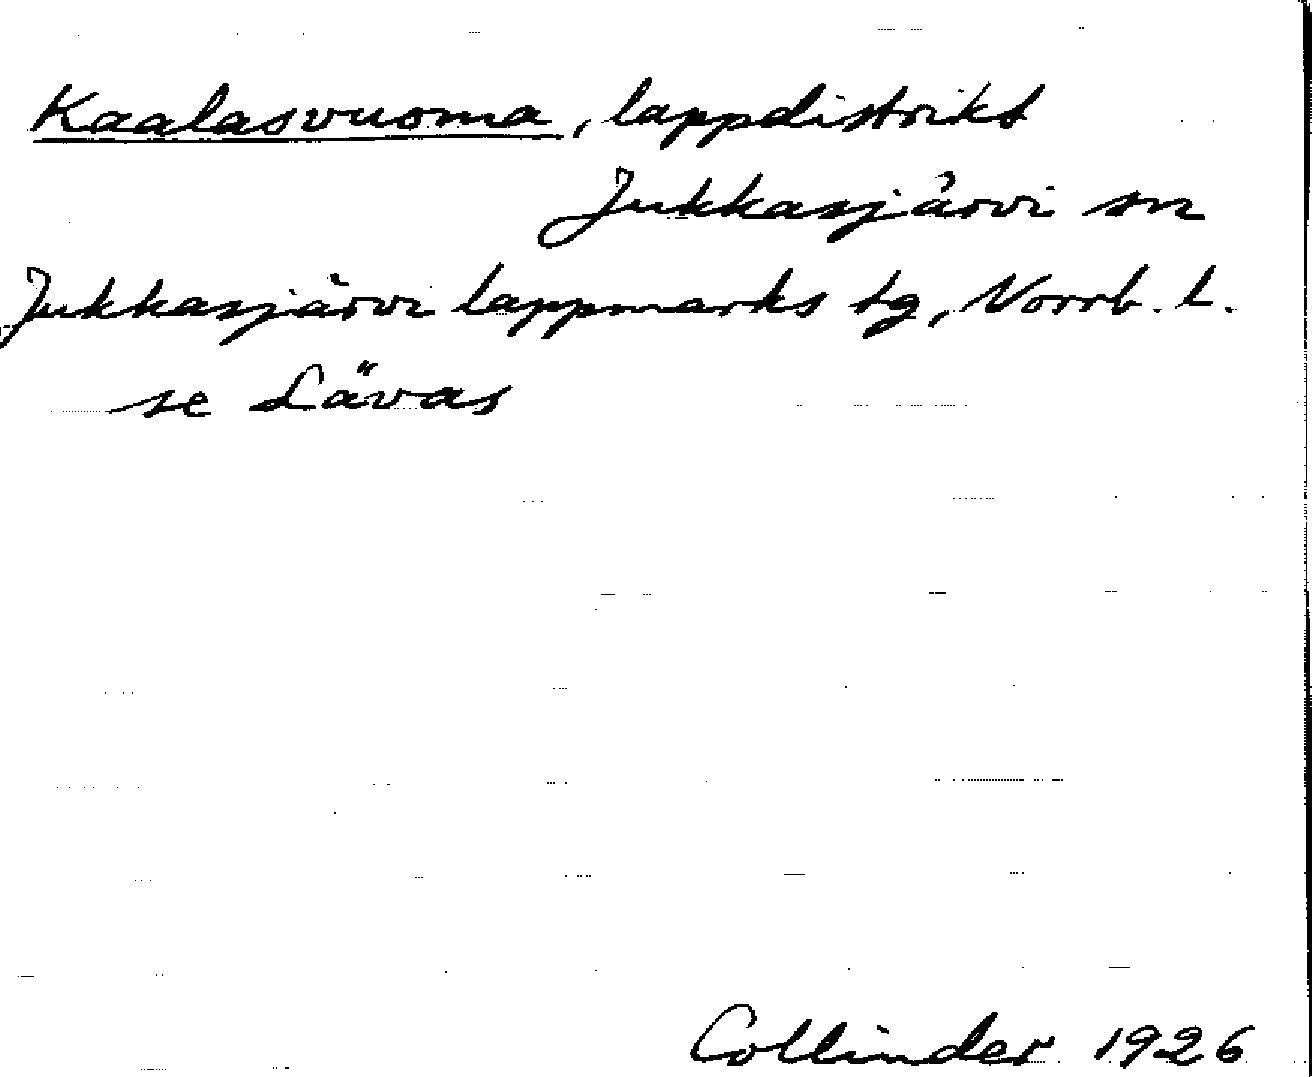 Kaalasvuoma, lappdistrikt
Jukkasjärvi sn
Jukkasjärvi lappmarks tg, Norrb. l.
se Lävas
Collinder 1926